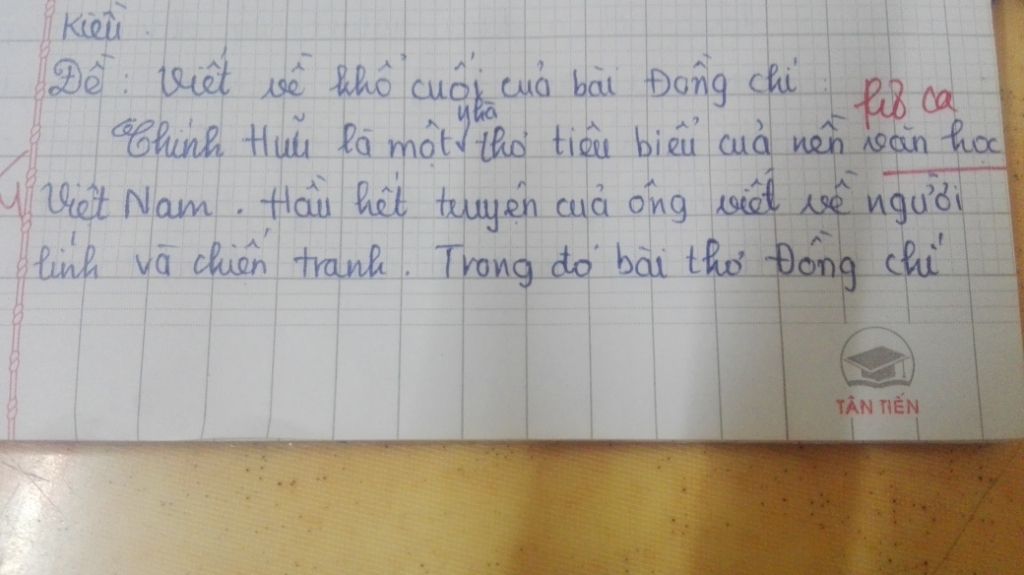 Kiều.
Đề: Viết về khổ cuối của bài Đồng chí
thi ca
nhà
Chính Hữu là một thơ tiêu biểu của nền văn học
Việt Nam. Hầu hết truyện của ông viết về người
lính và chiến tranh. Trong đó bài thơ Đồng chí
TÂN TIẾN